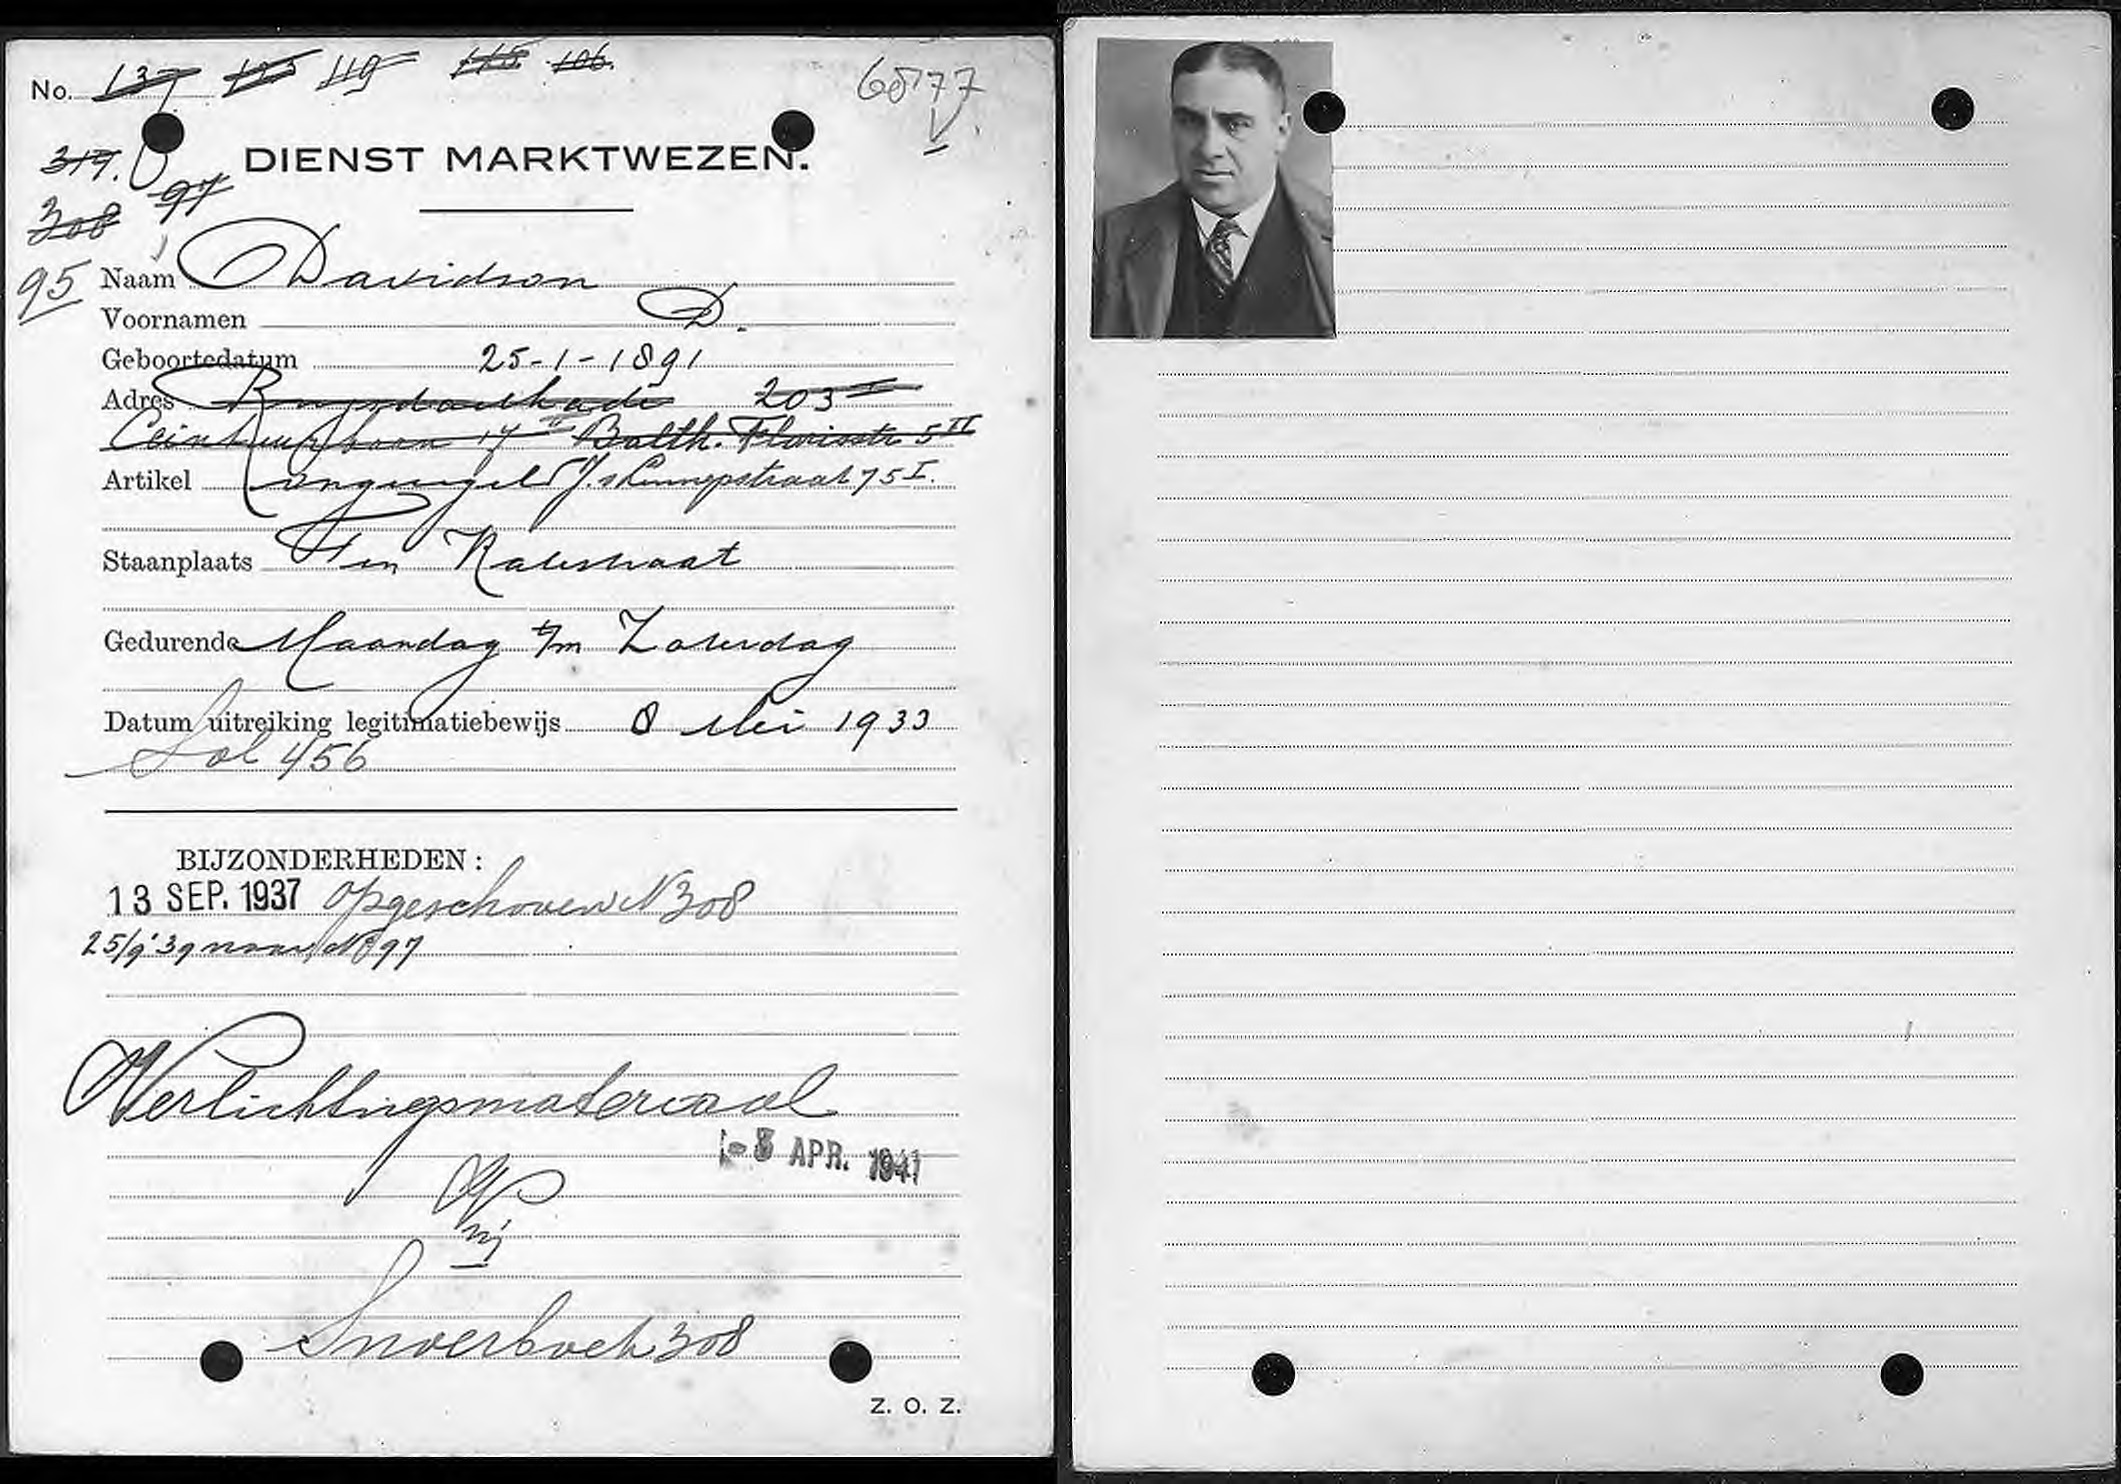 No. 137 125 119 115 106.
6877
V
319. 97
308
DIENST MARKTWEZEN.
95
Naam Davidson
Voornamen D.
Geboortedatum 25-1-1891
Adres Ruysdaelkade 203 I
Ceintuurbaan 17 II Balth. Florisstr 5 II
Artikel J. v Lennepstraat 75 I.
Staanplaats Ten Katestraat
Gedurende Maandag t/m Zaterdag
Datum uitreiking legitimatiebewijs 8 Mei 1933
Sol 456
BIJZONDERHEDEN:
13 SEP. 1937 opgeschoven N 308
25/9'39 naar No 97
Verlichtingsmateriaal
- 8 APR. 1941
308
Z. O. Z.